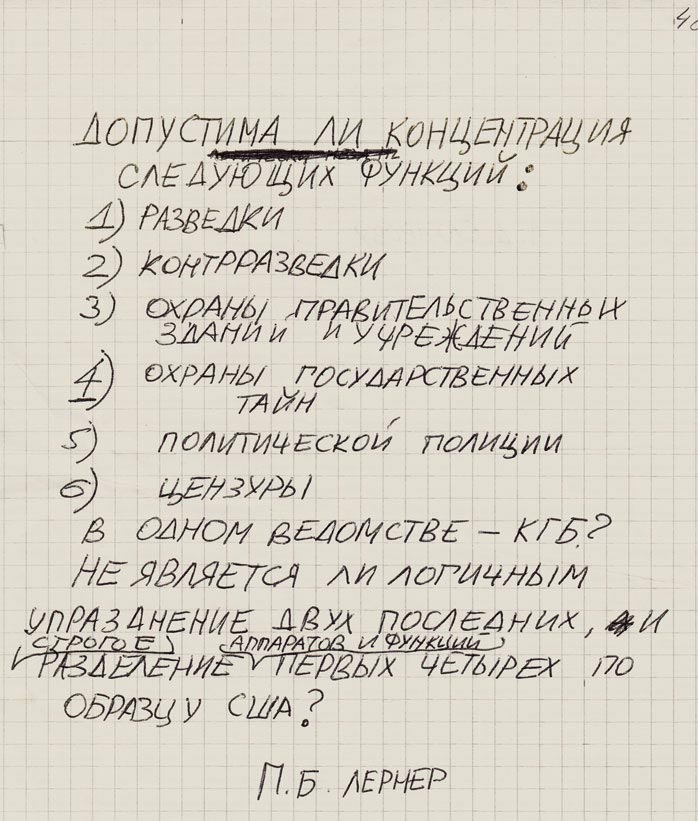 ДОПУСТИМА ЛИ КОНЦЕНТРАЦИЯ
СЛЕДУЮЩИХ ФУНКЦИЙ:
1) РАЗВЕДКИ
2) КОНТРРАЗВЕДКИ
3) ОХРАНЫ ПРАВИТЕЛЬСТВЕННЫХ
ЗДАНИЙ И УЧРЕЖДЕНИЙ
4) ОХРАНЫ ГОСУДАРСТВЕННЫХ
ТАЙН
5) ПОЛИТИЧЕСКОЙ ПОЛИЦИИ
6) ЦЕНЗУРЫ
В ОДНОМ ВЕДОМСТВЕ – КГБ?
НЕ ЯВЛЯЕТСЯ ЛИ ЛОГИЧНЫМ
УПРАЗДНЕНИЕ ДВУХ ПОСЛЕДНИХ, И
СТРОГОЕ АППАРАТОВ И ФУНКЦИЙ
РАЗДЕЛЕНИЕ ПЕРВЫХ ЧЕТЫРЕХ ПО
ОБРАЗЦУ США?
П.Б. ЛЕРНЕР